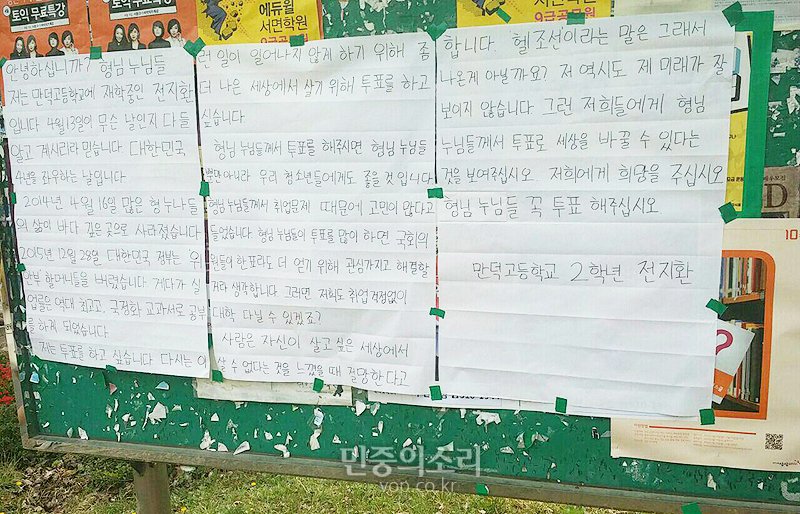 토익 무료특강
에듀윌
서면학원
9급공
안녕하십니까? 형님 누님들
저는 만덕고등학교에 재학중인 전지환
입니다 4월 13일이 무슨 날인지 다들
알고 계시리라 믿습니다 대한민국
4년을 좌우하는 날입니다
2014년 4월 16일 많은 형누나들
의 삶이 바다 깊은 곳으로 사라졌습니다
2015년 12월 28일 대한민국 정부는 위
안부 할머니들을 버렸습니다 게다가 실
업률은 역대 최고고, 국정화 교과서로 공부
를 하게 되었습니다
저는 투표를 하고 싶습니다 다시는 이
런 일이 일어나지 않게 하기 위해 좀
더 나은 세상에서 살기 위해 투표를 하고
싶습니다
형님 누님들께서 투표를 해주시면 형님 누님들
뿐만 아니라 우리 청소년들에게도 좋을 것 입니다
형님 누님들께서 취업문제 때문에 고민이 많다고
들었습니다 형님 누님들이 투표를 많이 하면 국회의
원들이 한표라도 더 얻기 위해 관심가지고 해결할
거라 생각합니다 그러면 저희도 취업걱정없이
대학 다닐 수 있겠죠?
사람은 자신이 살고 싶은 세상에서
살 수 없다는 것을 느꼈을 때 절망한다고
합니다. 헬조선이라는 말은 그래서
나온게 아닐까요? 저 역시도 제 미래가 잘
보이지 않습니다 그런 저희들에게 형님
누님들께서 투표로 세상을 바꿀 수 있다는
것을 보여주십시오 저희에게 희망을 주십시오
형님 누님들 꼭 투표 해주십시오
만덕고등학교 2학년 전지환
민중의소리
vop.co.kr